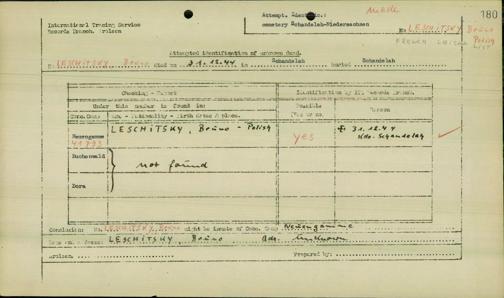 made
180
International Tracing Service
Records Branch, Arolsen
Attempt. Identific.:
cemetery Schandelah-Niedersachsen
No LESCHITSKY Bruno
Polish
FRENCH LIAISON LIST
Attempted identification of unknown dead.
No. LESCHITSKY, Bruno died on 31.12.44 in Schandelah buried Schandelah
Checking - Report
Identification by ITS Records Branch.
Under this number is found in:
Possible
Reason
Conc.Camp
Name - Nationality - Birth dates & place.
Yes or no.
LESCHITSKY, Bruno - Polish
Neuengamme
41793
yes
31.12.44
Kdo. Schandelah
Buchenwald
not found
Dora
Conclusion: No. LESCHITSKY, Bruno might be inmate of Conc. Camp Neuengamme
LESCHITSKY, Bruno unknown
Arolsen,
Prepared by: